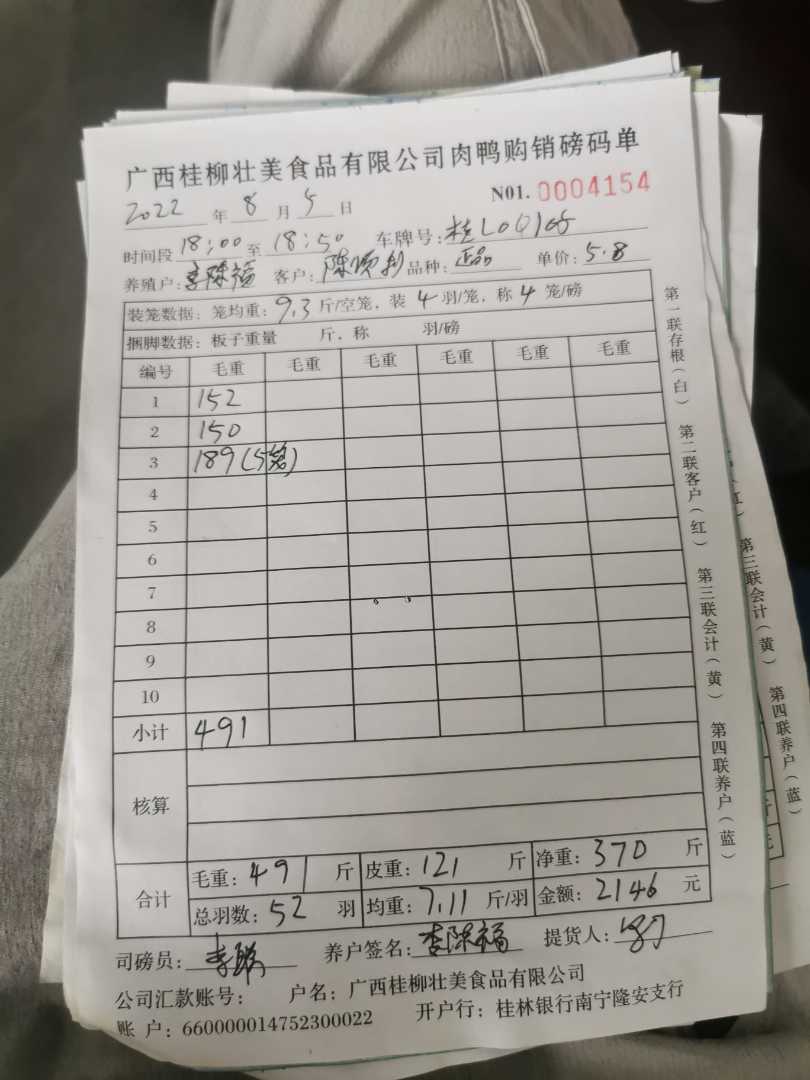 广西桂柳壮美食品有限公司肉鸭购销磅码单
2022 年 8 月 5 日 N01. 0004154
时间段 18:00 至 18:50 车牌号:桂L0Q165
养殖户:李陈福 客户:陈顺利 品种:正品 单价:5.8
装笼数据:笼均重:9.3斤/空笼,装 4 羽/笼,称 4 笼/磅
捆脚数据:板子重量 斤,称 羽/磅
编号 毛重 毛重 毛重 毛重 毛重 毛重
1 152
2 150
3 189(5笼)
4
5
6
7
8
9
10
小计 491
核算
合计 毛重:491 斤 皮重:121 斤 净重:370 斤
总羽数:52 羽 均重:7.11 斤/羽 金额:2146 元
司磅员: 养户签名:李陈福 提货人:
公司汇款账号: 户名:广西桂柳壮美食品有限公司
账 户:660000014752300022 开户行:桂林银行南宁隆安支行
第一联存根(白) 第二联客户(红) 第三联会计(黄) 第四联养户(蓝)
第三联会计(黄) 第四联养户(蓝)